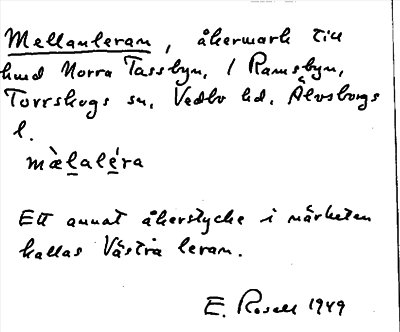 Mellanleran, åkermark till
hmd Norra Tassbyn, i Ramsbyn,
Torrskogs sn, Vedbo hd, Älvsborgs
l.
mæ̀laléra
Ett annat åkerstycke i närheten
kallas Västra leran.
E. Rosell 1949